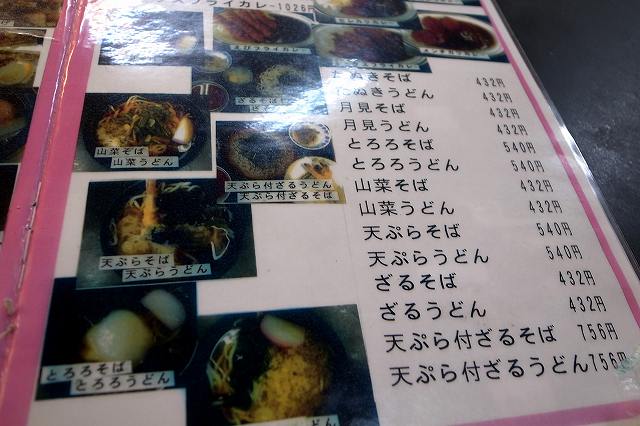 フライカレー1026円
えびフライカレー
ざるそば
山菜そば
山菜うどん
天ぷら付ざるうどん
天ぷら付ざるそば
天ぷらそば
天ぷらうどん
とろろそば
とろろうどん
たぬきそば 432円
たぬきうどん 432円
月見そば 432円
月見うどん 432円
とろろそば 540円
とろろうどん 540円
山菜そば 432円
山菜うどん 432円
天ぷらそば 540円
天ぷらうどん 540円
ざるそば 432円
ざるうどん 432円
天ぷら付ざるそば 756円
天ぷら付ざるうどん 756円